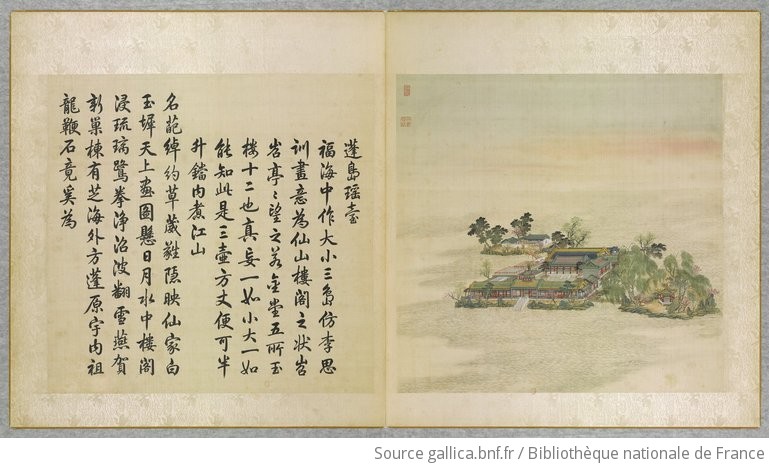 蓬島瑤臺
福海中作大小三島仿李思
訓畫意為仙山樓閣之狀岧
岧亭〻望之若金堂五所玉
樓十二也真妄一如小大一如
能知此是三壺方丈便可半
升鐺內煮江山
名葩綽約草葳蕤隱映仙家白
玉墀天上畫圖懸日月水中樓閣
浸琉璃鷺拳淨沼波翻雪燕賀
新巢棟有芝海外方蓬原宇內祖
龍鞭石竟奚為
Source gallica.bnf.fr / Bibliothèque nationale de France